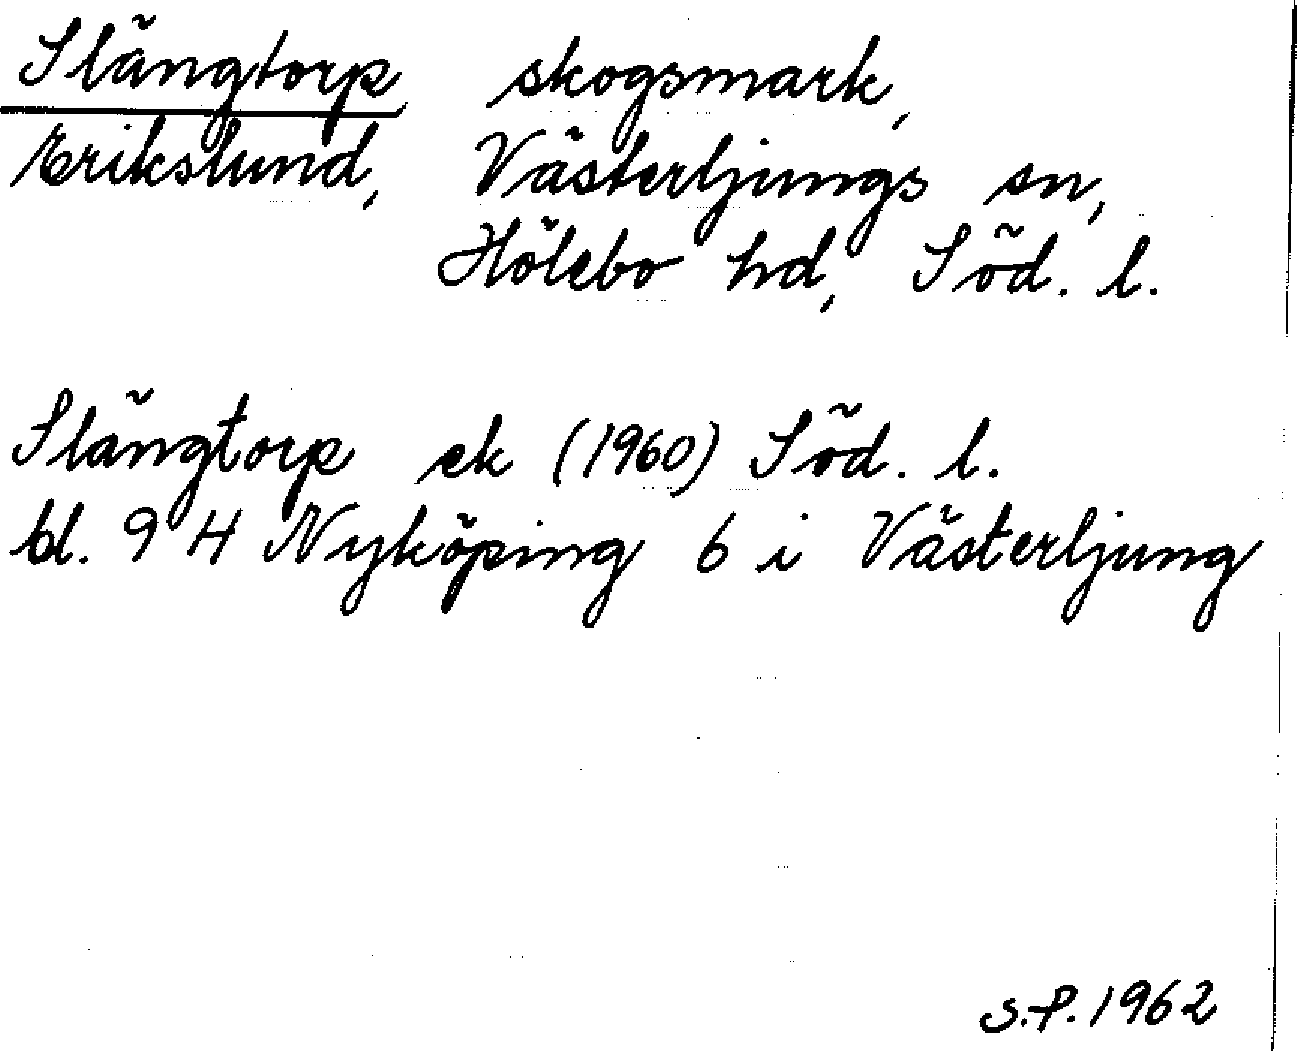 Slängtorp skogsmark,
Erikslund, Västerljungs sn,
Hölebo hd, Söd. l.
Slängtorp ek (1960) Söd. l.
bl. 9 H Nyköping 6 i Västerljung
S.P. 1962